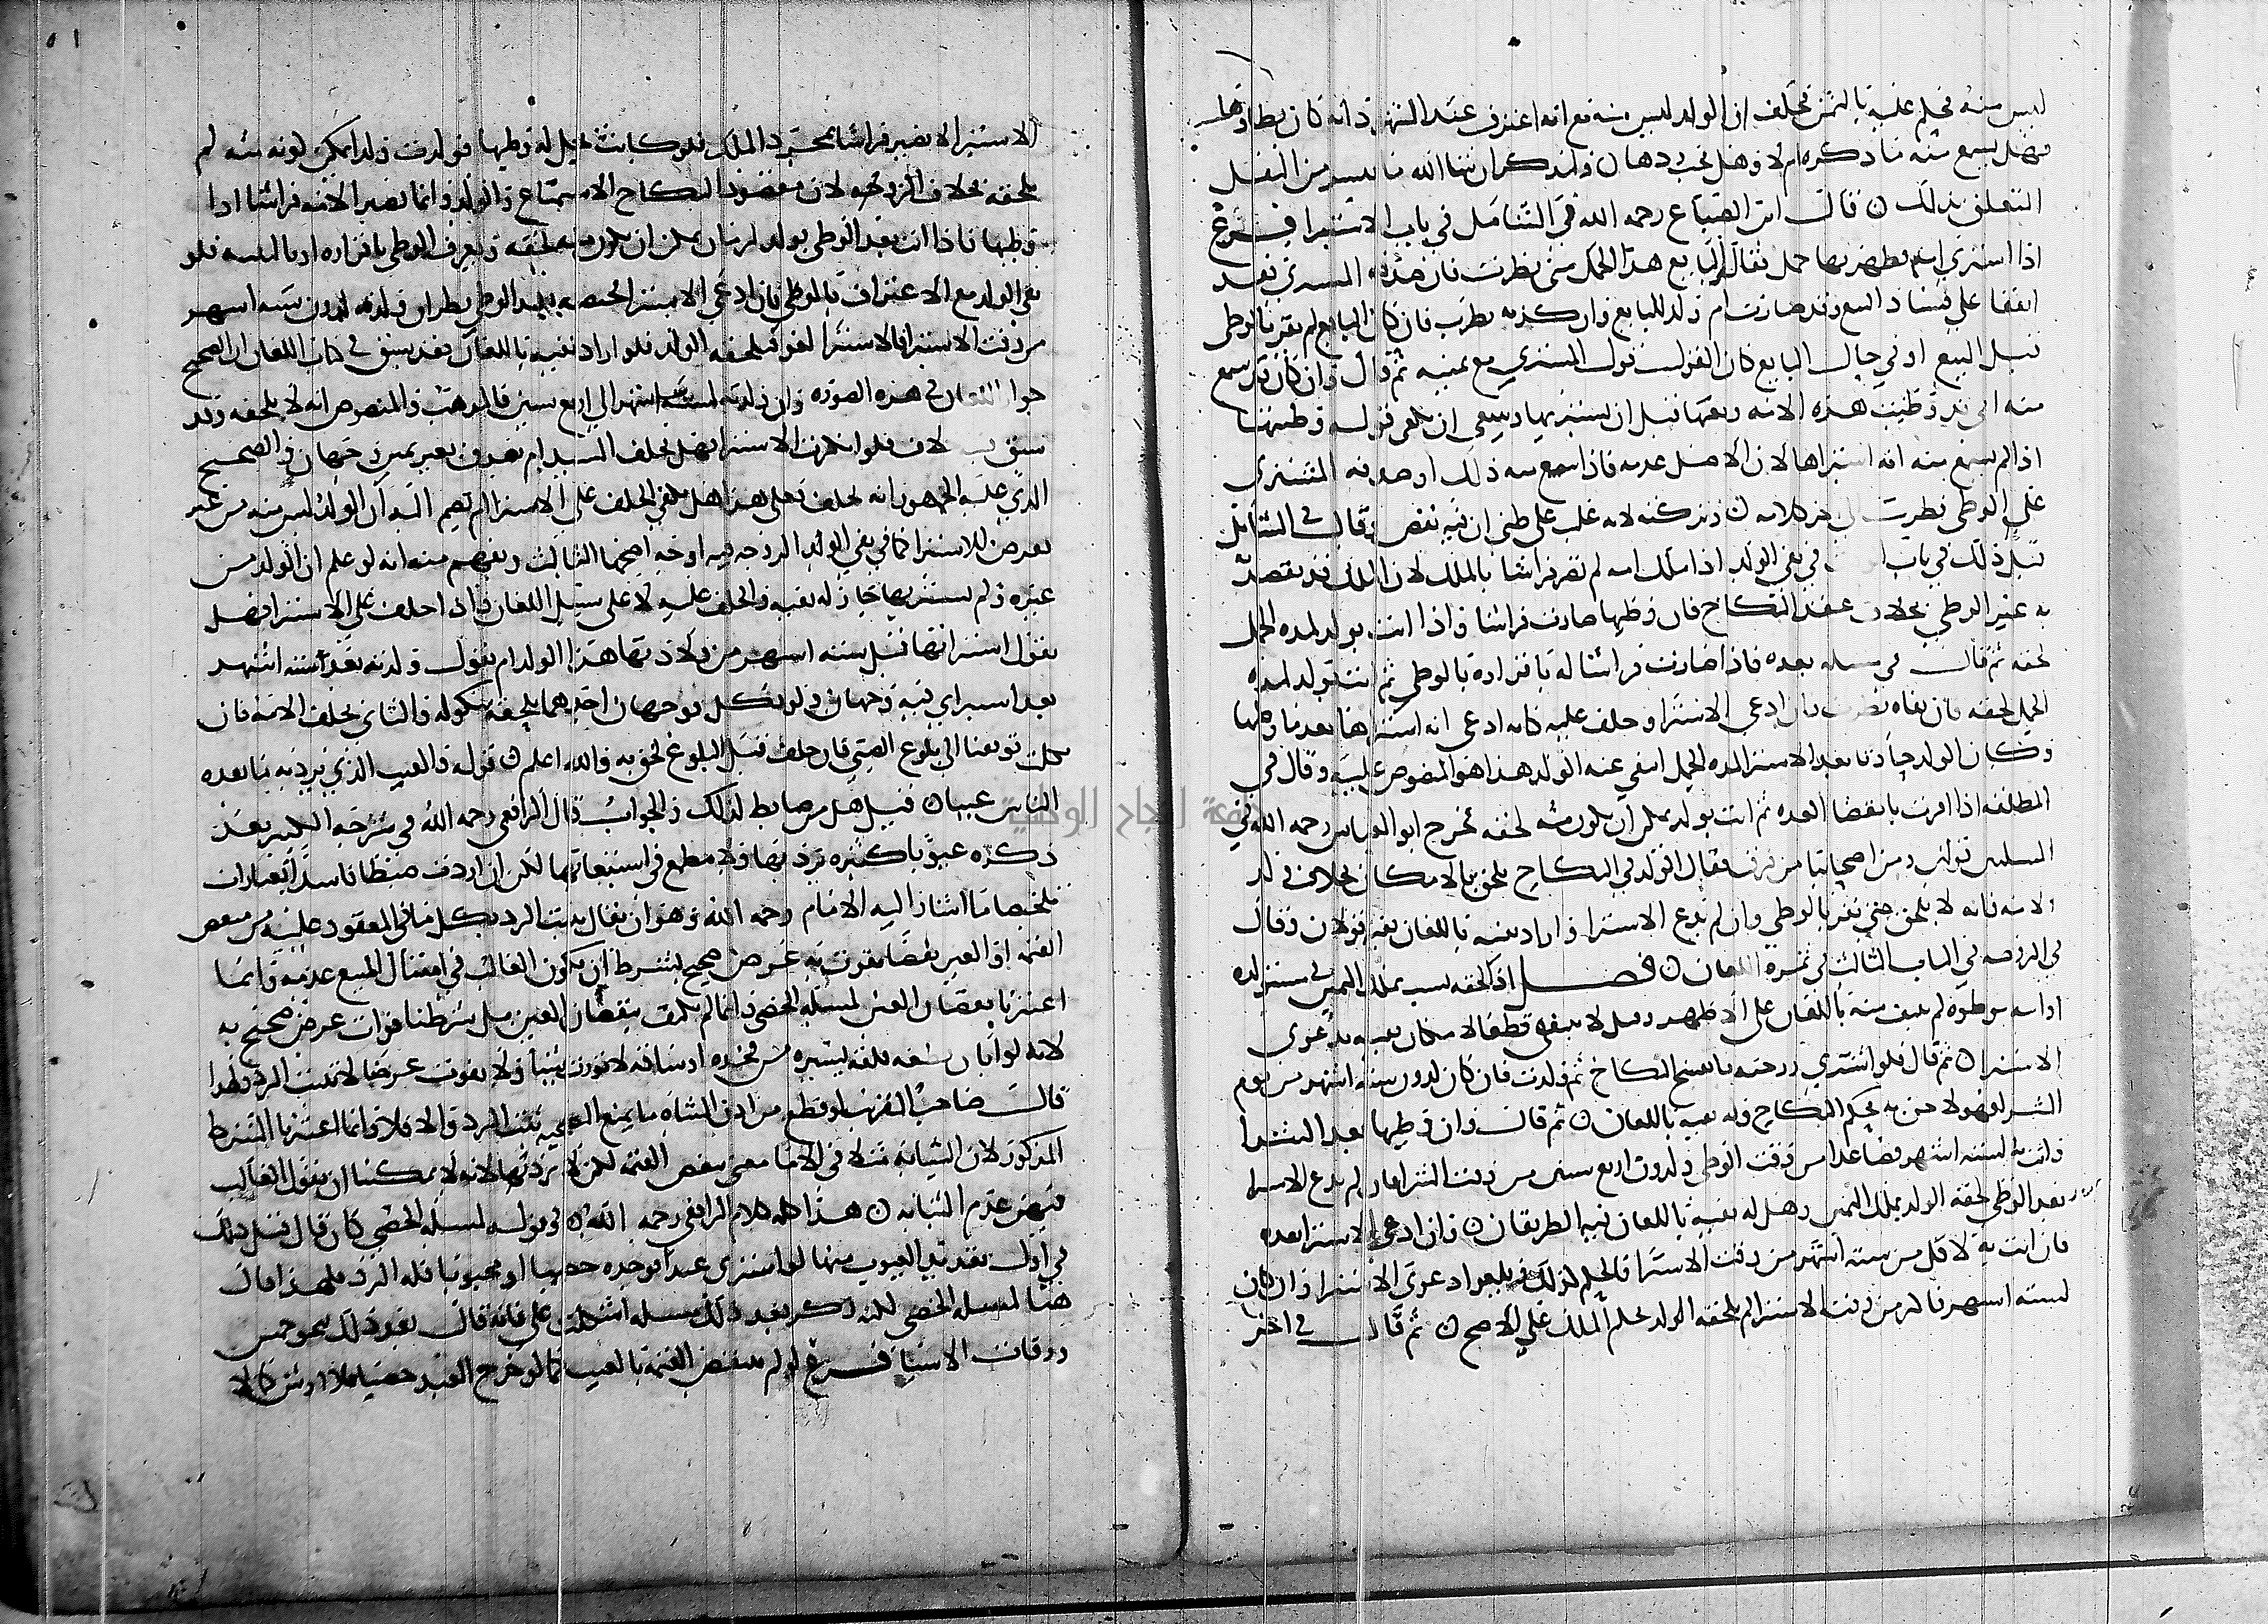 ليس منه فحكم عليه بالثمن فحلف ان الولد ليس منه مع انه اعترف عند الشهود انه كان يطاؤها
فهل يسمع منه ما ذكره ام لا وهل تجب ردها ن ولنذكر ان شا الله ما تيسر من النقل
المتعلق بذلك ن قال ابن الصباغ رحمه الله في الشامل في باب الاستبرا فرع
اذا اشترى امة فظهر بها حمل فقال البايع هذا الحمل مني نظرت فان صدقه المشتري فقد
اتفقا على فساد البيع وقد صارت ام ولد للبايع وان كذبه نظرت فان كان البايع لم يقر بالوطي
قبل البيع او في حال البيع كان القول قول المشتري مع يمينه ثم قال وان كان قد سمع
منه اني قد وطيت هذه الامة وبعتها قبل ان يستبريها
اذا لم يسمع منه انه استبراها لان الاصل عدمه فاذا سمع منه ذلك او صدقه المشتري
على الوطي نظرت الى اخر كلامه ن وتركته لانه غلب على ظني ان فيه نقص وقال في الشامل
قبل ذلك في باب في نفي الولد اذا ملك امة لم تصر فراشا بالملك لان الملك قد يقصد
به غير الوطي بخلاف عقد النكاح فان وطيها صارت فراشا واذا اتت بولد لمدة الحمل
لحقه ثم قال في مسله بعده فاذا صارت فراشا له باقراره بالوطي ثم اتت بولد لمدة
الحمل لحقه فان نفاه نظرت فان ادعى الاستبرا وحلف عليه كانه ادعى انه استبراها بعد ما وطيها
وكان الولد حادثا بعد الاستبرا لمدة الحمل انتفى عنه الولد هذا هو المنصوص عليه وقال في
المطلقة اذا اقرت بانقضا العدة ثم اتت بولد يمكن ان يكون منه لحقه فخرج ابو العباس رحمه الله في
المسلتين قولين ومن اصحابنا من فرق فقال الولد في النكاح يلحق بالامكان بخلاف ولد
الامة فانه لا يلحق حتى يقر بالوطي وان لم يدع الاستبرا واراد نفيه باللعان ففيه قولان وقال
في الروضه في الباب الثالث في ثمرة اللعان ن فصل اذا لحقه نسب بملك اليمين في مستولدة
او امة موطوة لم ينف منه باللعان على الاظهر وقيل لا ينفى قطعا لامكان نفيه بدعوى
الاستبرا ن ثم قال فلو اشترى زوجته فانفسخ النكاح ثم ولدت فان كان لدون ستة اشهر من يوم
الشرا فهو لاحق به بحكم النكاح وله نفيه باللعان ن ثم قال وان وطيها بعد الشرا
واتت به لستة اشهر فصاعدا من وقت الوطي ولدون اربع سنين من وقت الشرا فان لم يدع الاستبرا
بعد الوطي لحقه الولد بملك اليمين وهل له نفيه باللعان فيه الطريقان ن وان ادعى الاستبرا بعده
فان اتت به لاقل من ستة اشهر من وقت الاستبرا فالحكم كذلك ويلغو دعوى الاستبرا وان كان
لستة اشهر فاكثر من وقت الاستبرا لم يلحقه الولد بحكم الملك على الاصح ن ثم قال في اخر
الاستبرا لا تصير فراشا بمجرد الملك فلو كانت تحل له وطيها فولدت ولدا يمكن كونه منه لم
يلحقه بخلاف الزوجه لان مقصود النكاح الاستمتاع والولد وانما تصير الامة فراشا اذا
وطيها فاذا اتت بعد الوطي بولد لزمان يمكن ان يكون منه لحقه ويعرف الوطي باقراره او بالبينة فلو
نفى الولد مع الاعتراف بالوطي فان ادعى الاستبرا بحيضه بعد الوطي نظر ان ولدته لدون ستة اشهر
من وقت الاستبرا فالاستبرا لغو فيلحقه الولد فلو اراد نفيه باللعان فقد سبق في كتاب اللعان ان الصحيح
جواز اللعان في هذه الصورة وان ولدته لستة اشهر الى اربع سنين فالمذهب والمنصوص انه لا يلحقه وقد
سبق خلاف فلو انكرت الاستبرا فهل يحلف السيد ام يصدق بغير يمين وجهان والصحيح
الذي عليه الجمهور انه يحلف فعلى هذا هل يكفي الحلف على الاستبرا ام تضم اليه ان الولد ليس منه من غير
تعرض للاستبرا كما في نفي الولد الزوجه فيه اوجه اصحها الثالث ويفهم منه انه لو علم ان الولد من
غيره ولم يستبريها جاز له نفيه والحلف عليه لا على سبيل اللعان واذا حلف على الاستبرا فهل
يقول استبراتها قبل ستة اشهر من ولادتها هذا الولد ام يقول ولدته بعد ستة اشهر
بعد استبراي فيه وجهان ولو نكل فوجهان احدهما يلحقه بنكوله والثاني يحلف الامة فان
نكلت توقفنا الى بلوغ الصبي فان حلف قبل البلوغ لحق به والله اعلم ن قوله والعيب الذي يرد به ما يعده
الناس عيبا ن قيل هل من ضابط لذلك والجواب قال الرافعي رحمه الله في شرحه الكبير بعد
ذكره عيوبا كثيرة ترد بها ولا مطمع في استيعابها لكن ان اردت ضبطا فاسد العبارات
تلخيصا ما اشار اليه الامام رحمه الله وهو ان يقال يثبت الرد بكل ما في المعقود عليه من منقص
القيمة او العين نقصا يفوت به غرض صحيح بشرط ان يكون الغالب في امثال المبيع عدمه وانما
اعتبرنا نقصان العين لمسله الخصي وانما لم نكتف بنقصان العين بل شرطنا فوات غرض صحيح به
لانه لو ابان قطعه فلقه يسيره من فخذه او ساقه لا تورث شينا ولا يفوت غرضا لا يثبت الرد ولهذا
قال صاحب التقريب لو قطع من اذن الشاه ما يمنع التضحيه ثبت الرد والا فلا وانما اعتبرنا الشرط
المذكور لان الثيابه مثلا في الاما معنى ينقص القيمه لكن لا ترد بها لانه لا يمكننا ان نقول الغالب
فيهن عدم الثيابه ن هذا كله كلام الرافعي رحمه الله ن وقوله لمسله الخصي كان قال قبل ذلك
في اول تعديد العيوب منها لو اشترى عبدا فوجده خصيا او مجبوبا فله الرد فلهذا قال
هنا لمسله الخصي لكنه ذكر بعد ذلك مسله اشكلت علي فانه قال بعد ذلك بنحو خمس
ورقات الاشيا فرع لو لم ينقص القيمه بالعيب كما لو خرج العبد خصيا فلا ارش كالا